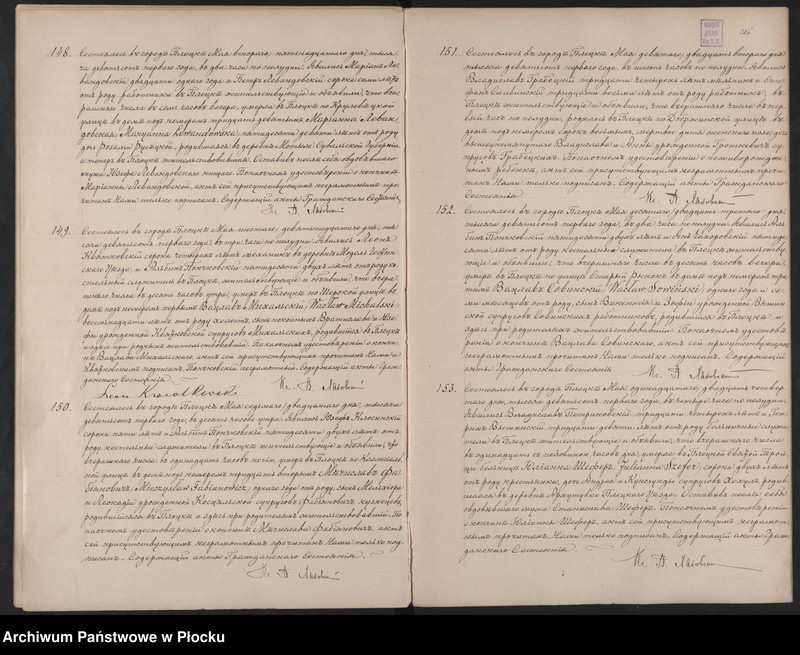 148. Состоялось въ городѣ Плоцкѣ Мая втораго, пятнадцатаго дня, тыся-
ча девятьсотъ перваго года, въ два часа по полудни. Явились Маріанъ Ле-
вандовскій двадцати одного года и Петръ Левандовскій сорока семи лѣтъ
отъ роду, работники въ Плоцкѣ жительствующіе и объявили, что вче-
рашняго числа въ семь часовъ вечера, умерла въ Плоцкѣ по
улицѣ въ домѣ подъ номеромъ тридцать девятымъ Маріанна Леван-
довская Maryanna Lewandowska, пятидесяти девяти лѣтъ отъ роду
дочь Розаліи родившаяся въ деревнѣ Сувалкской Губерніи
а теперь въ Плоцкѣ жительствовавшая. Оставивъ послѣ себя овдовѣвшаго
мужа Левандовскаго нищаго. По наочномъ удостовѣреніи о кончинѣ
Маріанны Левандовской, актъ сей присутствующимъ неграмотнымъ про-
читанъ Нами только подписанъ. Содержащій акты Гражданскаго Состоянія
149. Состоялось въ городѣ Плоцкѣ Мая шестаго, девятнадцатаго дня, ты-
сяча девятьсотъ перваго года, въ три часа по полудни. Явились Леонъ
Квятковскій сорока четырехъ лѣтъ механикъ въ деревнѣ
Уѣзда, и Альбинъ Пончковскій пятидесяти двухъ лѣтъ отъ роду ко-
стельный служитель въ Плоцкѣ, жительствующіе и объявили, что вчера-
шняго числа въ десять часовъ утра, умеръ въ Плоцкѣ по Широкой улицѣ въ
домѣ подъ номеромъ первымъ Вацлавъ Михальскій, Wacław Michalski,
восемнадцати лѣтъ отъ роду холостъ, сынъ Вратислава и Жо-
фіи урожденной супруговъ Михальскихъ, родившійся въ Плоцкѣ
и здѣсь при родныхъ жительствовавшій. По наочномъ удостовѣреніи о кончи-
нѣ Вацлава Михальскаго, актъ сей присутствующимъ прочитанъ Нами и
подписанъ, Пончковскій неграмотный. Содержащій акты Граж-
данскаго Состоянія
150. Состоялось въ городѣ Плоцкѣ Мая седьмаго, двадцатаго дня, тысяча
девятьсотъ перваго года, въ десять часовъ утра. Явились Іосифъ Клосинскій
сорока пяти лѣтъ и Альбинъ Пончковскій пятидесяти двухъ лѣтъ отъ
роду, костельные служители въ Плоцкѣ жительствующіе и объявили, что
вчерашняго числа въ одинадцать часовъ ночи, умеръ въ Плоцкѣ по
улицѣ въ домѣ подъ номеромъ тридцать вторымъ Мѣчиславъ Фа-
біяновичъ, Mieczysław Fabianowicz, одного года отъ роду, сынъ Мельхіора
и Леокадіи урожденной супруговъ Фабіяновичъ кузнецовъ,
родившійся въ Плоцкѣ и здѣсь при родителяхъ жительствовавшій. По
наочномъ удостовѣреніи о кончинѣ Мѣчислава Фабіяновича, актъ
сей присутствующимъ неграмотнымъ прочитанъ Нами только под-
писанъ. Содержащій акты Гражданскаго Состоянія
151. Состоялось въ городѣ Плоцкѣ Мая девятаго, двадцать втораго дня
тысяча девятьсотъ перваго года, въ шесть часовъ по полудни. Явились
Владиславъ Грабецкій тридцати четырехъ лѣтъ и Сте-
фанъ тридцати восьми лѣтъ отъ роду работникъ, въ
Плоцкѣ жительствующіе и объявили, что вчерашняго числа въ пер-
вый часъ по полудни, родилось въ Плоцкѣ по Добржинской улицѣ въ
домѣ подъ номеромъ сорокъ восьмымъ, мертвое дитя женскаго пола, дочь
вышеупомянутаго Владислава и Анны урожденной су-
пруговъ Грабецкихъ. По наочномъ удостовѣреніи о неживорожден-
номъ ребенкѣ, актъ сей присутствующимъ неграмотнымъ прочи-
танъ Нами только подписанъ. Содержащій акты Гражданскаго
Состоянія
152. Состоялось въ городѣ Плоцкѣ Мая десятаго, двадцать третьяго дня,
тысяча девятьсотъ перваго года, въ два часа по полудни. Явились Аль-
бинъ Пончковскій пятидесяти двухъ лѣтъ и пятиде-
сяти лѣтъ отъ роду костельные служители въ Плоцкѣ жительству-
ющіе и объявили, что вчерашняго числа въ десять часовъ вечера,
умеръ въ Плоцкѣ по улицѣ Старый Рынокъ въ домѣ подъ номеромъ тре-
тьимъ Вацлавъ Совинскій, Wacław Sowiński, одного года и се-
ми мѣсяцевъ отъ роду, сынъ Викентія и Зофіи урожденной
супруговъ Совинскихъ работниковъ, родившійся въ Плоцкѣ и
здѣсь при родителяхъ жительствовавшій. По наочномъ удостовѣ-
реніи о кончинѣ Вацлава Совинскаго, актъ сей присутствующимъ
неграмотнымъ прочитанъ Нами только подписанъ. Содержащій
акты Гражданскаго Состоянія
153. Состоялось въ городѣ Плоцкѣ Мая одинадцатаго, двадцать четвер-
таго дня, тысяча девятьсотъ перваго года, въ четыре часа по полудни.
Явились Владиславъ Петриковскій тридцати четырехъ лѣтъ и Ген-
рихъ тридцати девяти лѣтъ отъ роду, больничные служи-
тели въ Плоцкѣ жительствующіе и объявили, что вчерашняго числа
въ одинадцать съ половиною часовъ дня, умерла въ Плоцкой Святой Трои-
цы больницѣ Юліанна Шеферъ, Julianna Szefer, сорока двухъ лѣтъ
отъ роду крестьянка, дочь Андрея и Кунегунды супруговъ роди-
вшаяся въ деревнѣ Плоцкаго Уѣзда. Оставивъ послѣ себя
овдовѣвшаго мужа Станислава Шеферъ. По наочномъ удостовѣреніи
о кончинѣ Юліанны Шеферъ, актъ сей присутствующимъ неграмот-
нымъ прочитанъ, Нами только подписанъ. Содержащій акты Граж-
данскаго Состоянія
Archiwum Państwowe w Płocku